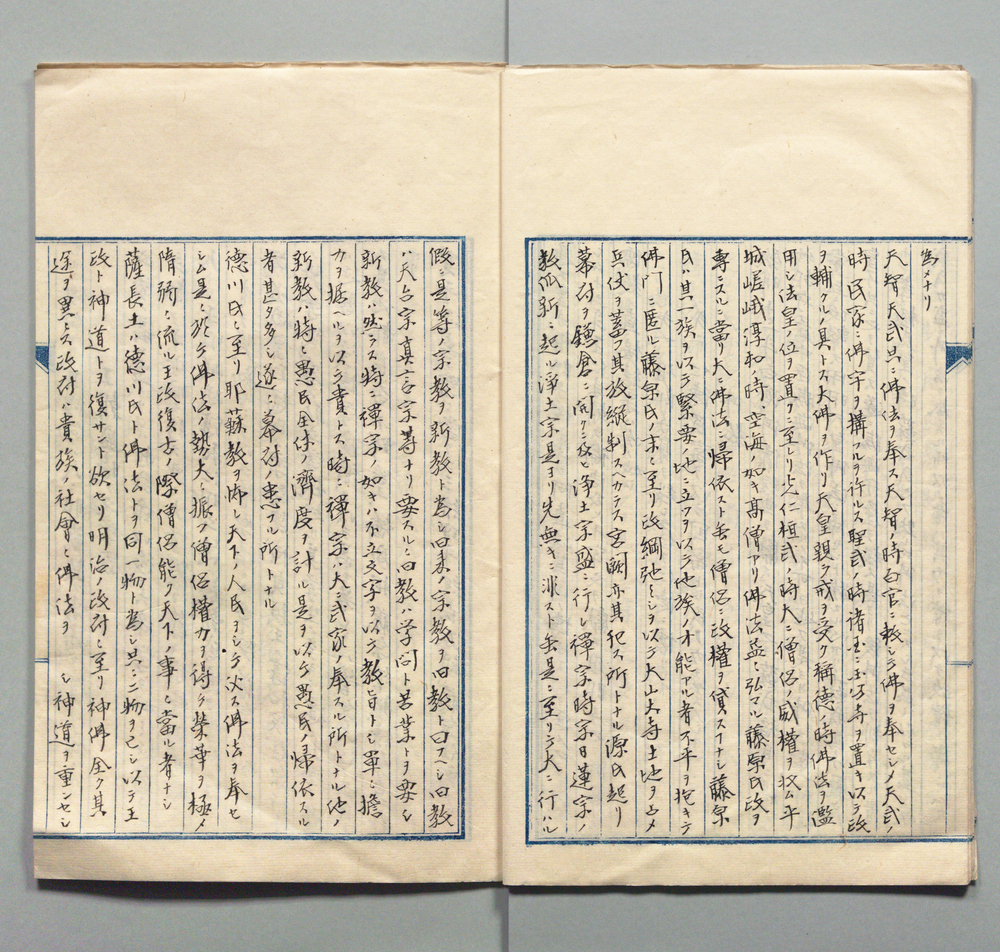 為メナリ
天智天武共ニ佛法ヲ奉ス天智ノ時百官ニ敕シテ佛ヲ奉セシメ天武ノ
時民家ノ佛宇ヲ搆フルヲ許ルス聖武ノ時諸国ニ国分寺ヲ置キ以テ政
ヲ輔クルノ具トス大佛ヲ作リ天皇親ラ戒ヲ受ク稱徳ノ時佛法ヲ濫
用シ法皇ノ位ヲ置クニ至レリ光仁桓武ノ時大ニ僧侶ノ威權ヲ收ム平
城嵯峨淳和ノ時空海ノ如キ髙僧アリ佛法益ニ弘マル藤原氏政ヲ
專ニスルニ當リ大ニ佛法ニ帰依スト雖モ僧侶ニ政權ヲ貸スヿナシ藤原
氏ハ其一族ヲ以テ緊要ノ地ニ立ツヲ以テ他族ノ才能アル者不平ヲ抱キテ
佛門ニ匿ル藤原氏ノ末ニ至リ政綱弛ミシヲ以テ大山大寺土地ヲ占メ
兵仗ヲ蓄フ其放縱制スカラス宮闕亦其犯ス所トナル源氏起リ
幕府ヲ鎌倉ニ開クニ及ヒ浄土宗盛ニ行レ禪宗時宗日蓮宗ノ
数派新ニ起ル浄土宗是ヨリ先無キニ非スト雖是ニ至リテ大ニ行ハル
假ニ是等ノ宗教ヲ新教ト為シ旧来ノ宗教ヲ旧教ト曰フヘシ旧教
ハ天台宗真言宗等ナリ要スルニ旧教ハ学問ト苦業トヲ要シ
新教ハ然ラス特ニ禪宗ノ如キハ不立文字ヲ以テ教旨トシ單ニ擔
力ヲ据ヘルヲ以テ貴トス時ニ禪宗ハ大ニ武家ノ奉スル所トナル他ノ
新教ハ特ニ愚民全体ノ濟度ヲ計ル是ヲ以テ愚民ノ帰依スル
者甚タ多シ遂ニ幕府ノ患フル所トナル
德川氏ニ至リ耶蘇教ヲ怖レ天下ノ人民ヲシテ必ス佛法ヲ奉セ
シム是ニ於テ佛法ノ勢大ニ振フ僧侶權力ヲ得テ榮華ヲ極メ
隋弱ニ流ル王政復古ノ際僧侶能ク天下ノ事ニ當ル者ナシ
薩長土ハ德川氏ト佛法トヲ同一物ト為シ共ニ二物ヲ亡シ以テ王
政ト神道トヲ復サント欲セリ明治ノ政府ニ至リ神佛全ク其
途ヲ異ニス政府ハ貴族ノ社會ニ佛法ヲ シ神道ヲ重ンセシ